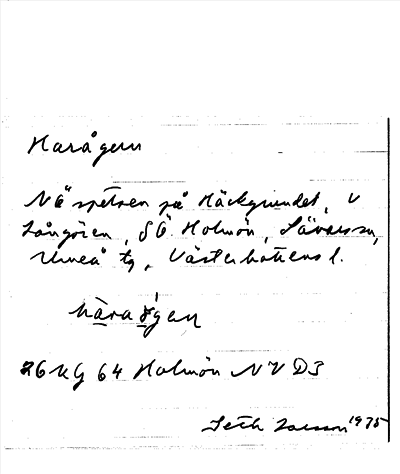 Harågern
NÖ spetsen på Häckgrundet, V
Långören, SÖ. Holmön, Sävars sn,
Umeå tg, Västerbottens l.
hàra ɣ́gern
26 KG 64 Holmön NV D3
Seth 1975